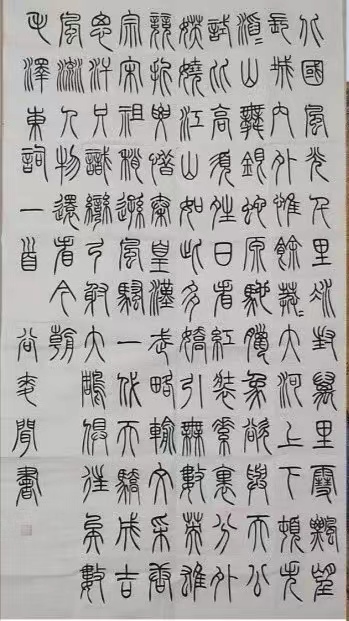 北國風光千里冰封萬里雪飄望
長城內外惟餘莽〻大河上下頓失
滔〻山舞銀蛇原馳蠟象欲與天公
試比高須晴日看紅裝素裹分外
妖嬈江山如此多嬌引無數英雄
競折腰惜秦皇漢武略輸文采唐
宗宋祖稍遜風騷一代天驕成吉
思汗只識彎弓射大鵰俱往矣數
風流人物還看今朝
毛澤東詞一首 谷書